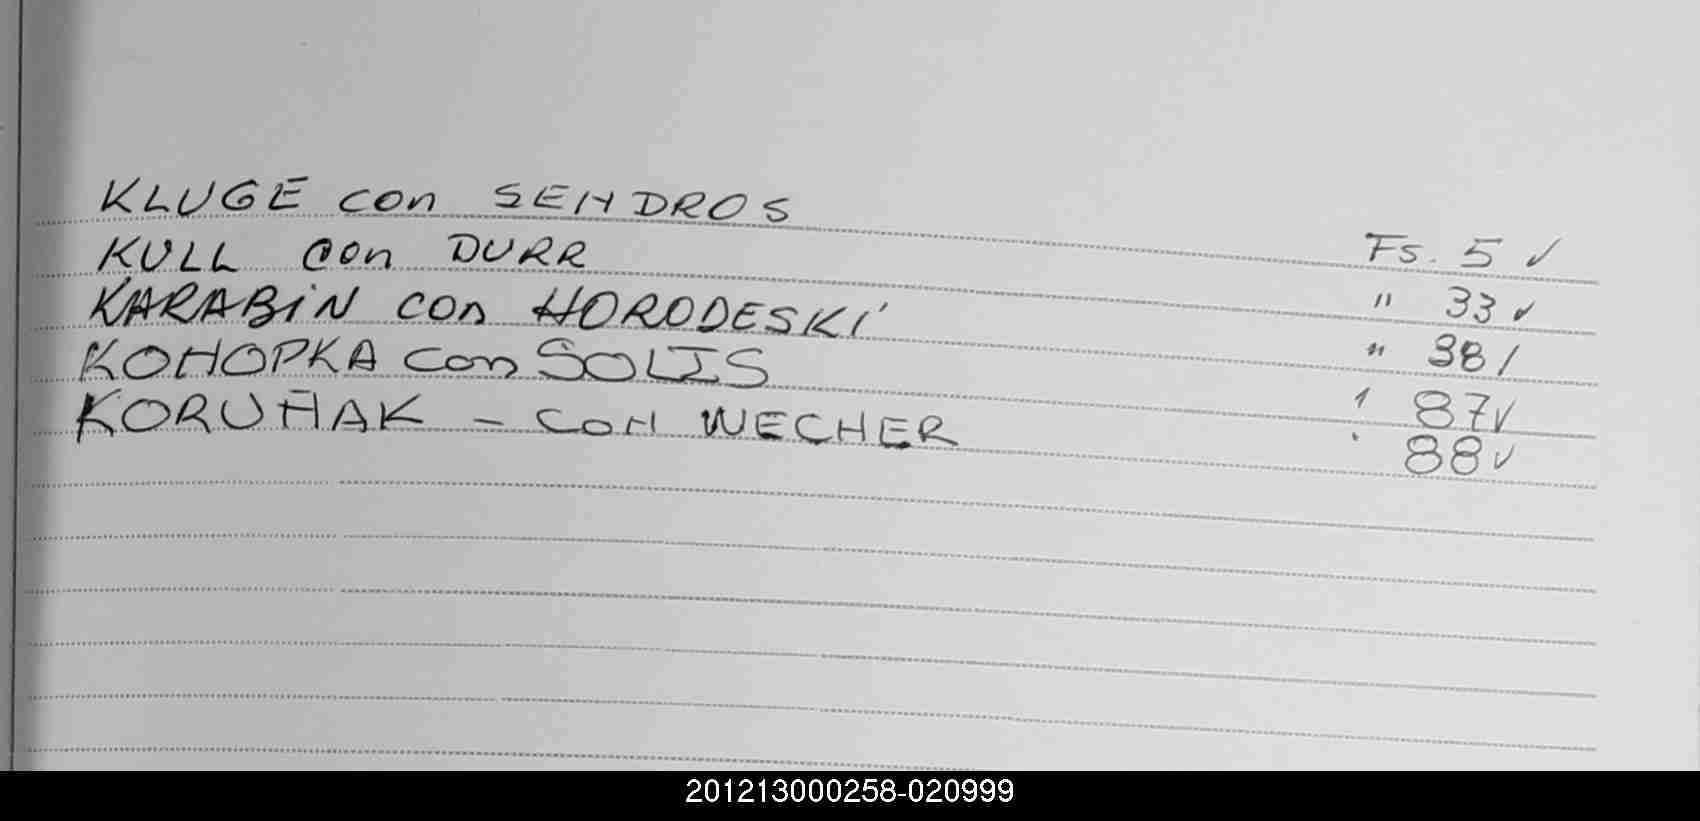 KLUGE con SENDROS Fs. 5 ✓
KULL con DURR " 33 ✓
KARABIN con HORODESKI " 38 /
KONOPKA con SOLIS ' 87 ✓
KORUÑAK - con WECHER . 88 ✓
201213000258-020999